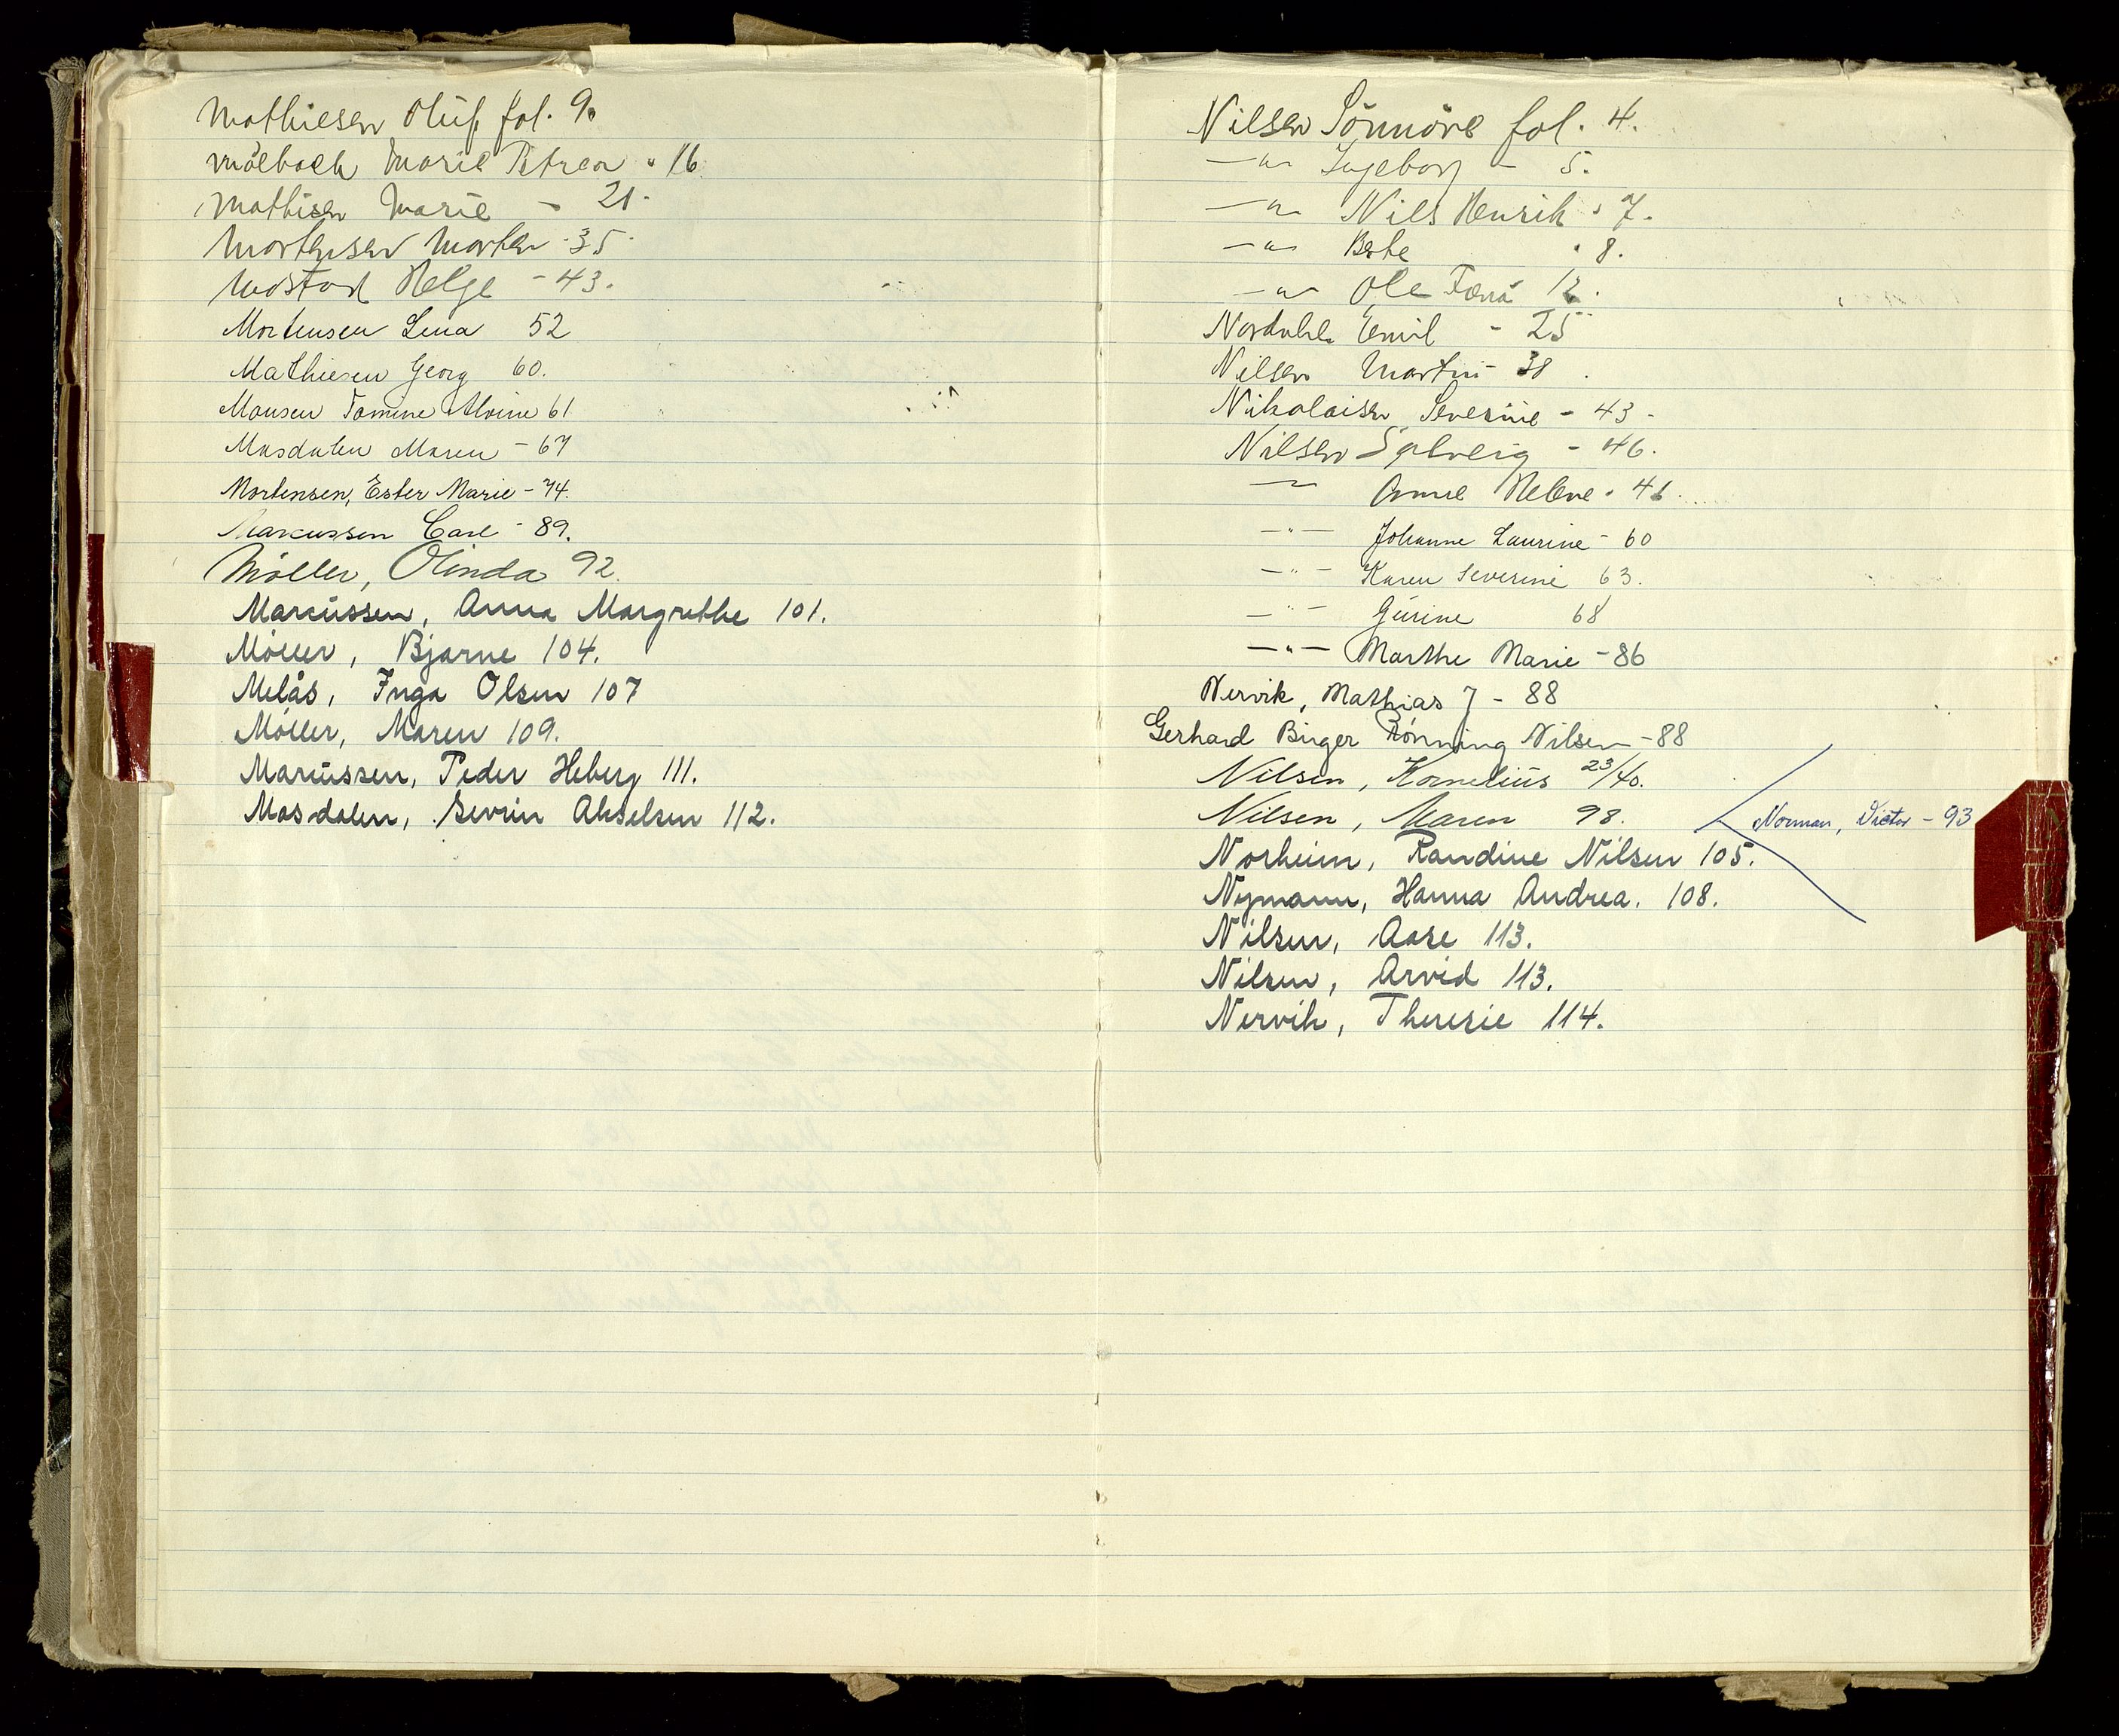 Mathiesen Oluf fol. 9.
Målbach Marie Petrea " 16.
Mathisen Marie - 21.
Mortensen Morten - 35.
Mostad Helge - 43.
Mortensen Lena 52
Mathiesen Georg 60.
Monsen Tomine Alvine 61
Masdalen Maren - 67
Mortensen, Ester Marie - 74.
Marcussen Carl - 89.
Möller, Olinda 92.
Marcussen, Anna Margrethe 101.
Möller, Bjarne 104.
Melås, Inga Olsen 107
Möller, Maren 109.
Marcussen, Peder Heberg 111.
Masdalen, Sevrin Akselsen 112.
Nilsen Sönnöve fol. 4.
—"— Ingeborg - 5.
—"— Nils Henrik " 7.
—"— Berte " 8.
—"— Ole 12.
Nordahl Emil - 25
Nilsen Martin - 38.
Nikolaisen Severine - 43 -
Nilsen Solveig - 46.
— Anne Helene - 46.
—"— Johanne Laurine - 60
—"— Karen Severine 63.
—"— Gurine 68
—"— Marthe Marie - 86
Nervik, Mathias J - 88
Gerhard Birger Rønning Nilsen - 88
Nilsen, Kornelius 23/40.
Nilsen, Maren 98.
Norman, Victor - 93
Norheim, Randine Nilsen 105.
Nymann, Hanna Andrea. 108.
Nilsen, Aase 113.
Nilsen, Arvid 113.
Nervik, Theresie 114.